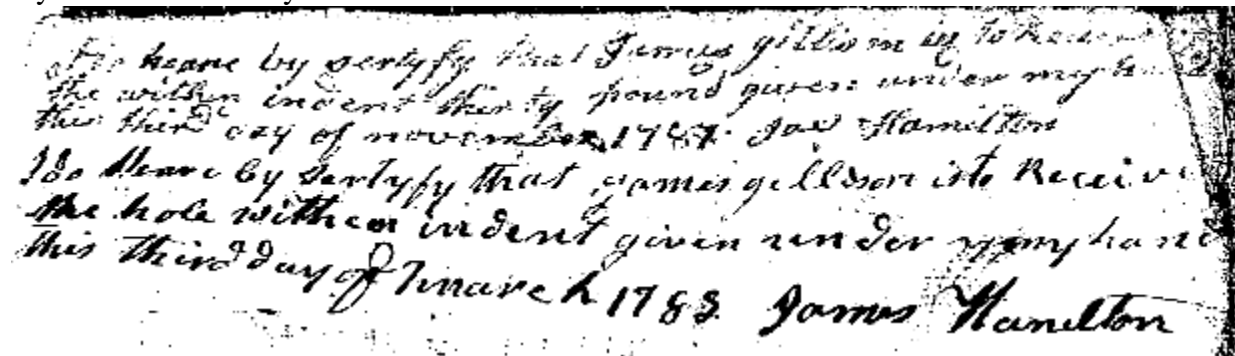 I Do heare by sertyfy that James gillison is to Receive
the within indent thirty pound given under my hand
this third day of november 1787. Jas Hamilton
I do heare by sertyfy that james gillison is to Receive
the hole within indent given under my hand
this third day of march 1788 James Hamilton